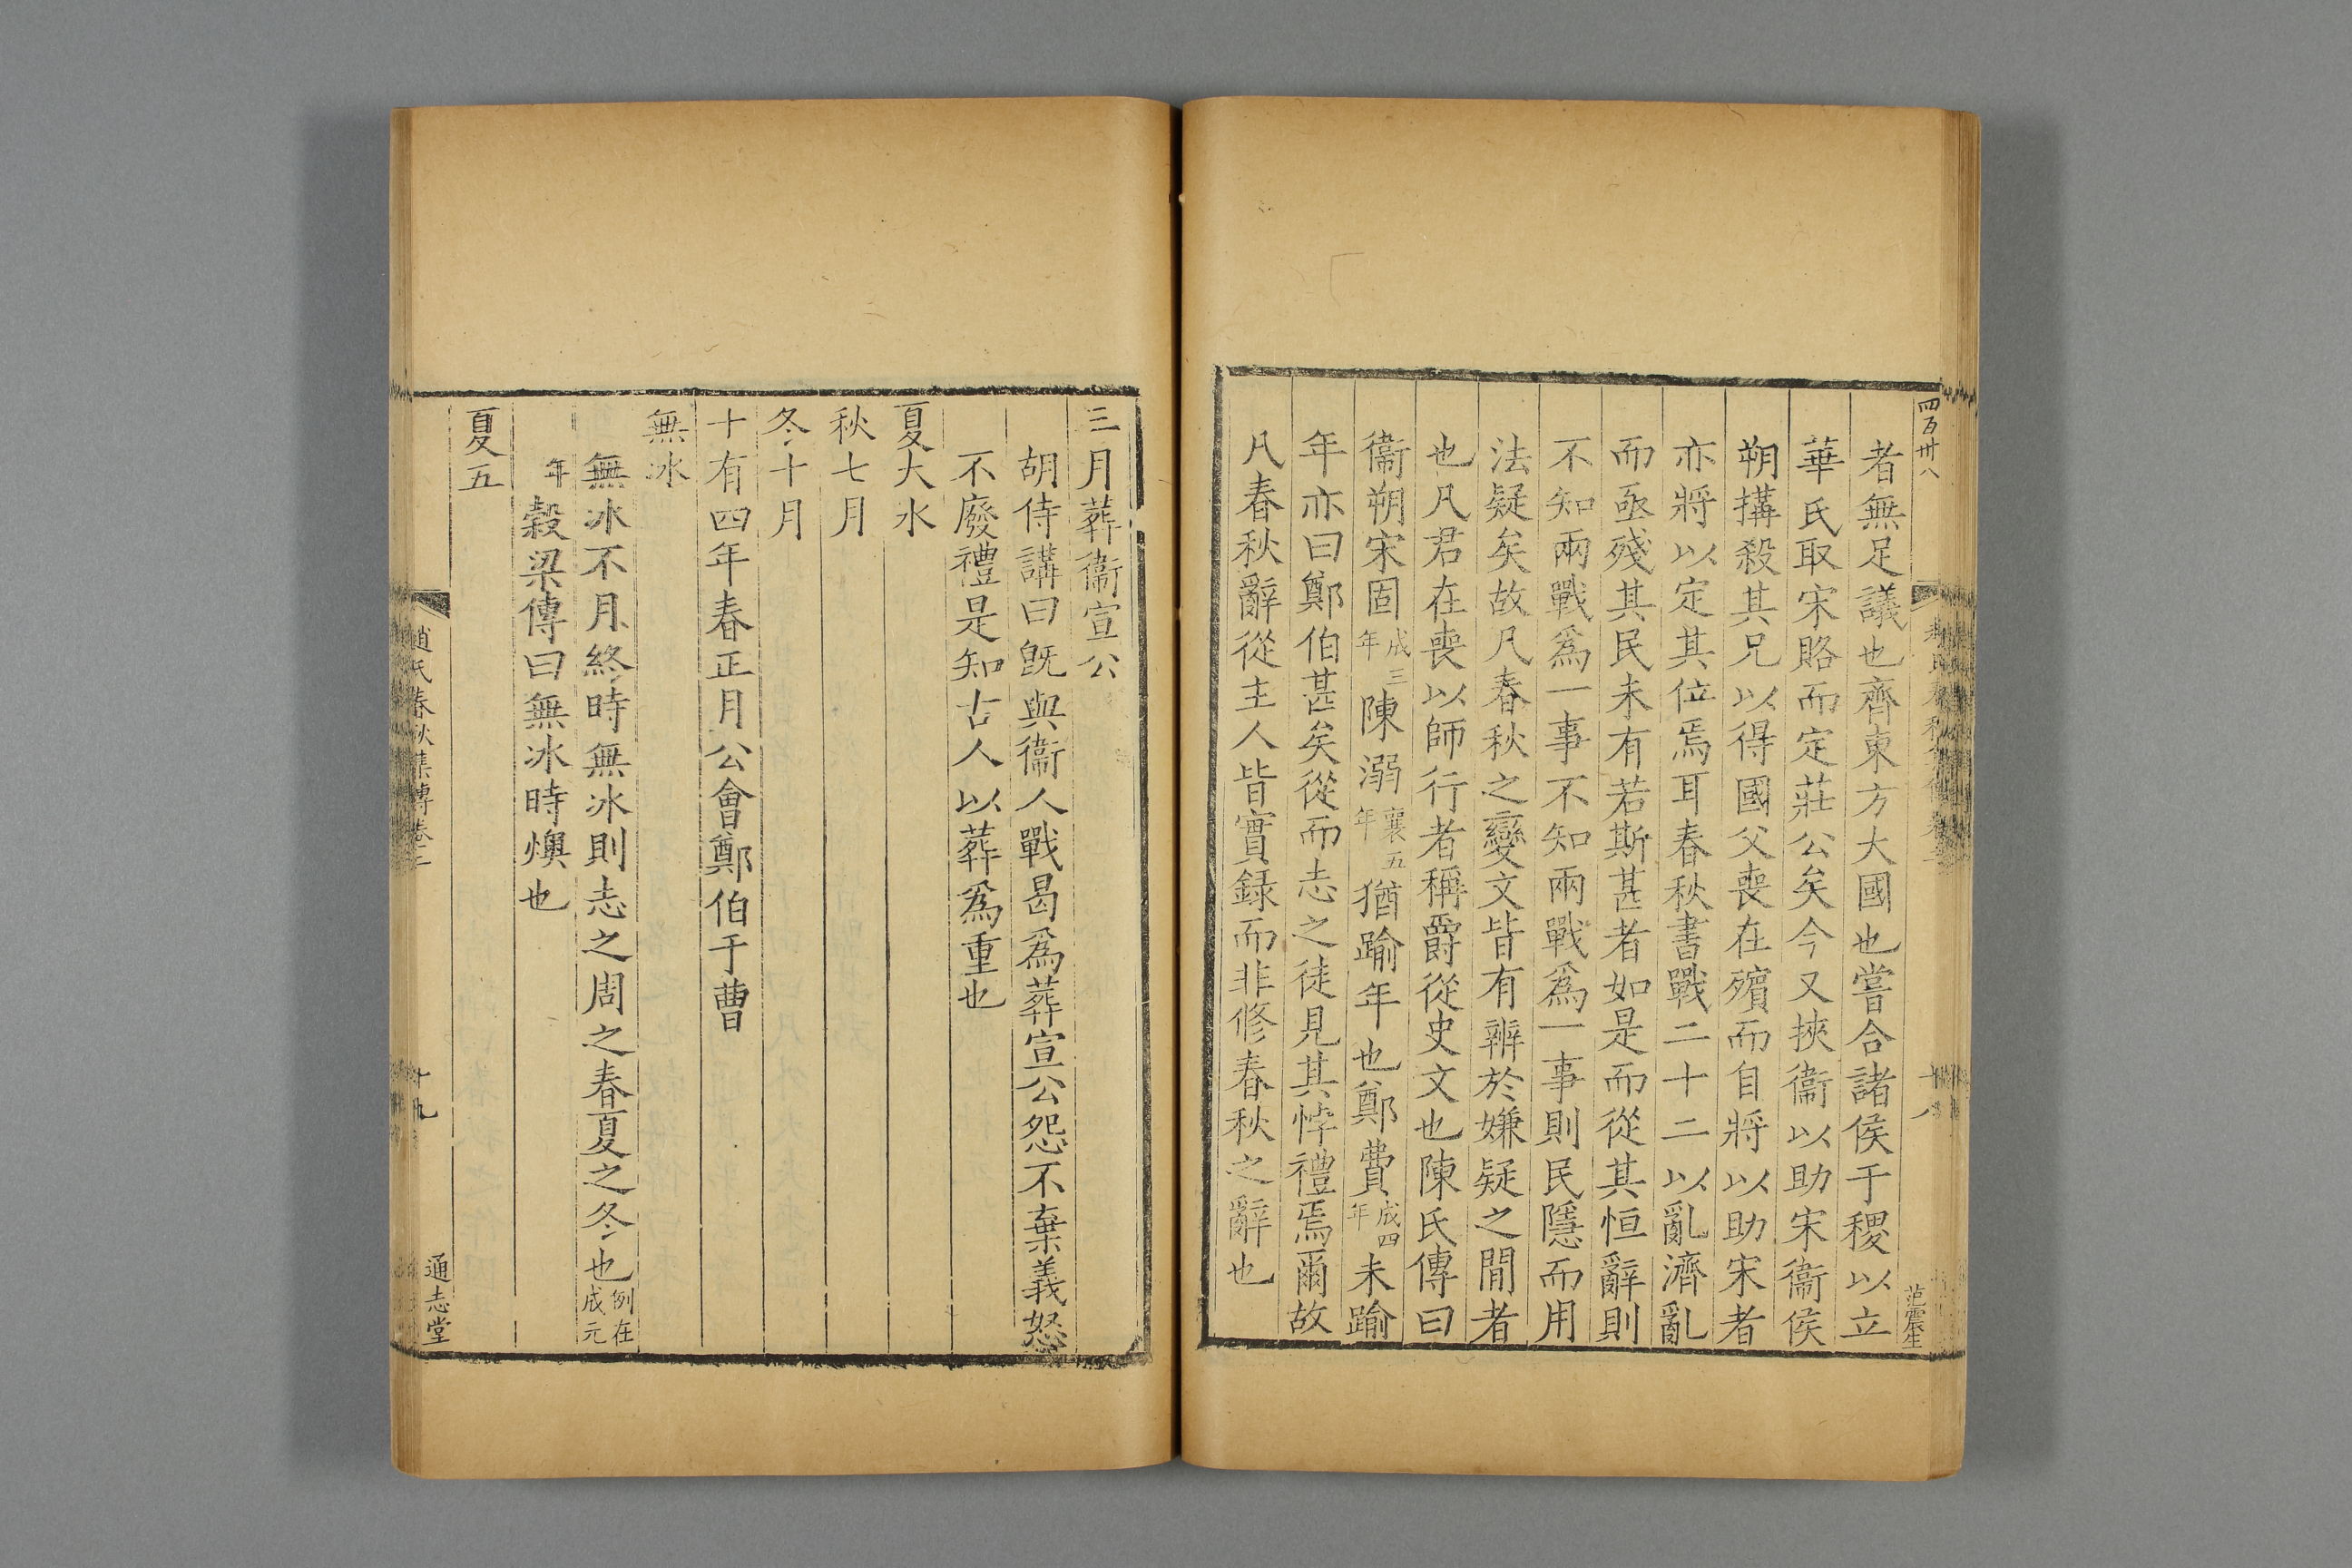 四百卅八
范震生
者無足議也齊東方大國也嘗合諸侯于稷以立
華氏取宋賂而定莊公矣今又挾衞以助宋衞侯
朔搆殺其兄以得國父喪在殯而自將以助宋者
亦將以定其位焉耳春秋書戰二十二以亂濟亂
而亟殘其民未有若斯甚者如是而從其恒辭則
不知兩戰爲一事不知兩戰爲一事則民隱而用
法疑矣故凡春秋之變文皆有辨於嫌疑之間者
也凡君在喪以師行者稱爵從史文也陳氏傳曰
衞朔宋固成三年陳溺襄五年猶踰年也鄭費成四年未踰
年亦曰鄭伯甚矣從而志之徒見其悖禮焉爾故
凡春秋辭從主人皆實録而非修春秋之辭也
三月葬衞宣公
胡侍講曰旣與衞人戰曷爲葬宣公怨不棄義怒
不廢禮是知古人以葬爲重也
夏大水
秋七月
冬十月
十有四年春正月公會鄭伯于曹
無冰
無冰不月終時無冰則志之周之春夏之冬也例在成元
年穀梁傳曰無冰時燠也
夏五
趙氏春秋集傳卷二
十九
通志堂